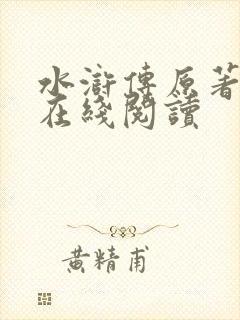 水滸傳原著
在綫閱讀
黄精甫